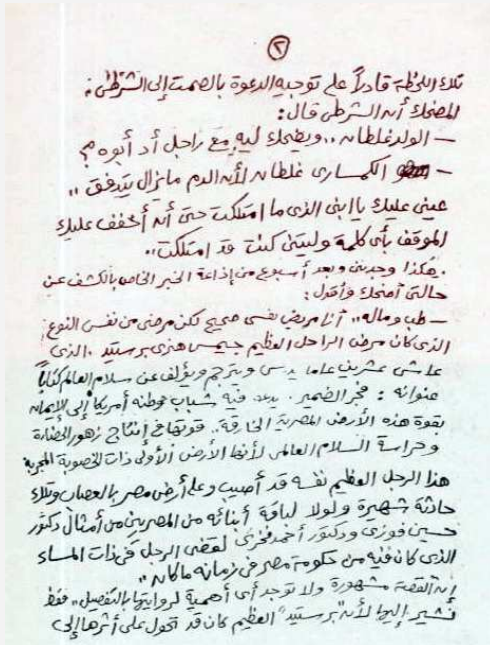 ٢
تلك اللحظة قادراً على توجيه الدعوة بالصمت إلى الشرطى.
المضحك أن الشرطى قال:
– الولد غلطان .. ويضحك ليه مع راجل أد أبوه؟
– الكمسارى غلطان لأن الدم مايزال يتدفق ..
عينى عليك يا ابنى الذى ما امتلكت حتى أن أخفف عليك
الموقف بأى كلمة وليتنى كنت قد امتلكت ..
. هكذا وجدتنى وبعد أسبوع من إذاعة الخبر الخاص بالكشف عن
حالتى أضحك وأقول:
– طب وماله .. أنا مريض نفسى صحيح لكن مرضى من نفس النوع
الذى كان مرض الراحل العظيم جيمس هنرى برستيد . الذى
عاش عشرين عاما يدرس ويترجم ويؤلف عن سلام العالم كتاباً
عنوانه : فجر الضمير . يدعو فيه شباب وطنه أمريكا إلى الإيمان
بقوة هذه الأرض المصرية الخارقة .. قوتها فى إنتاج زهور الحضارة
وحراسة السلام العالمى لأنها الأرض الأولى ذات الخصوبة المجربة
هذا الرجل العظيم نفسه قد أصيب وعلى أرض مصر بالعصاب وتلك
حادثة شهيرة ولولا لباقة أبنائه من المصريين من أمثال دكتور
حسين فوزى ودكتور أحمد فخرى لقضى الرجل فى ذات المساء
الذى كان فيه من حكومة مصر فى زمانه ما كان ..
إن القصة مشهورة ولا توجد أى أهمية لروايتها بالتفصيل .. فقط
نشير إليها لأن "برستيد" العظيم كان قد تحول على أثرها إلى